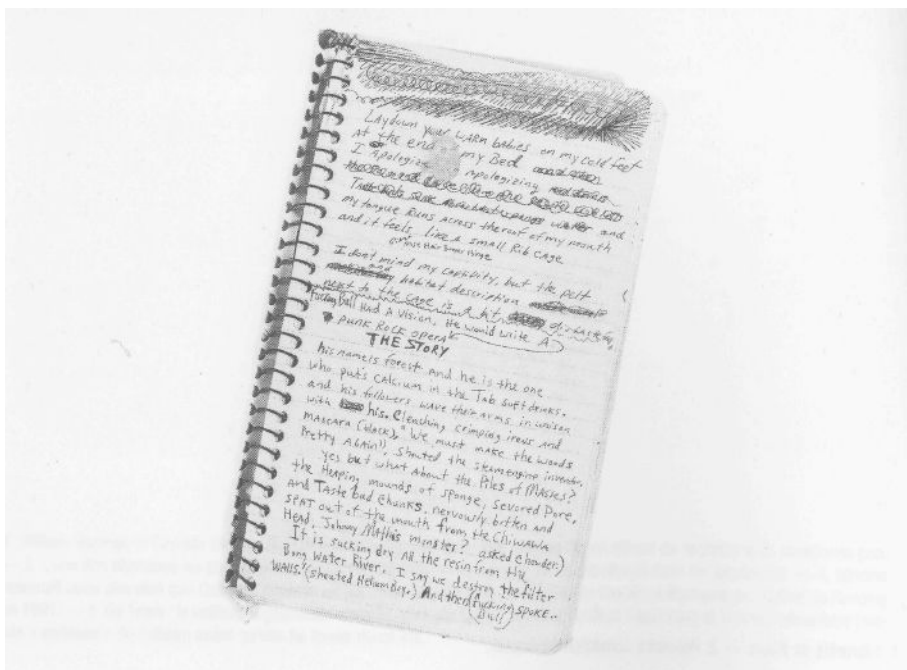 Lay down your warm babies on my cold feet
At the end my Bed
I Apologize Apologizing
and
my tongue Runs across the roof of my mouth
and it feels like a small Rib cage
I dont mind my captivity, but the pelt
and habitat description
next to the cage is
Fucking Bull Had A Vision. He would write A
punk Rock opera
THE STORY
his name is forest And he is the one
who put's calcium in the Tab soft drinks.
and his followers wave their arms in unison
with his. Clenshing crimping irons and
MASCARA (black). "We must make the woods
Pretty AGAin!!, Shouted the steamengine inventor.
yes but what About the Piles of MASHes?
the Heaping mounds of sponge, Severed Pore,
And TASTe bud chunks, nervously bitten and
SPAT out of the mouth from the Chiwawa
Head, Johnny Mathis monster? asked Chowder.)
It is sucking dry All the resin from the
Bong Water River. I say we destroy the filter
WALLS." (shouted Helium Boy.) And then (Fucking) SPOKE..
Bull